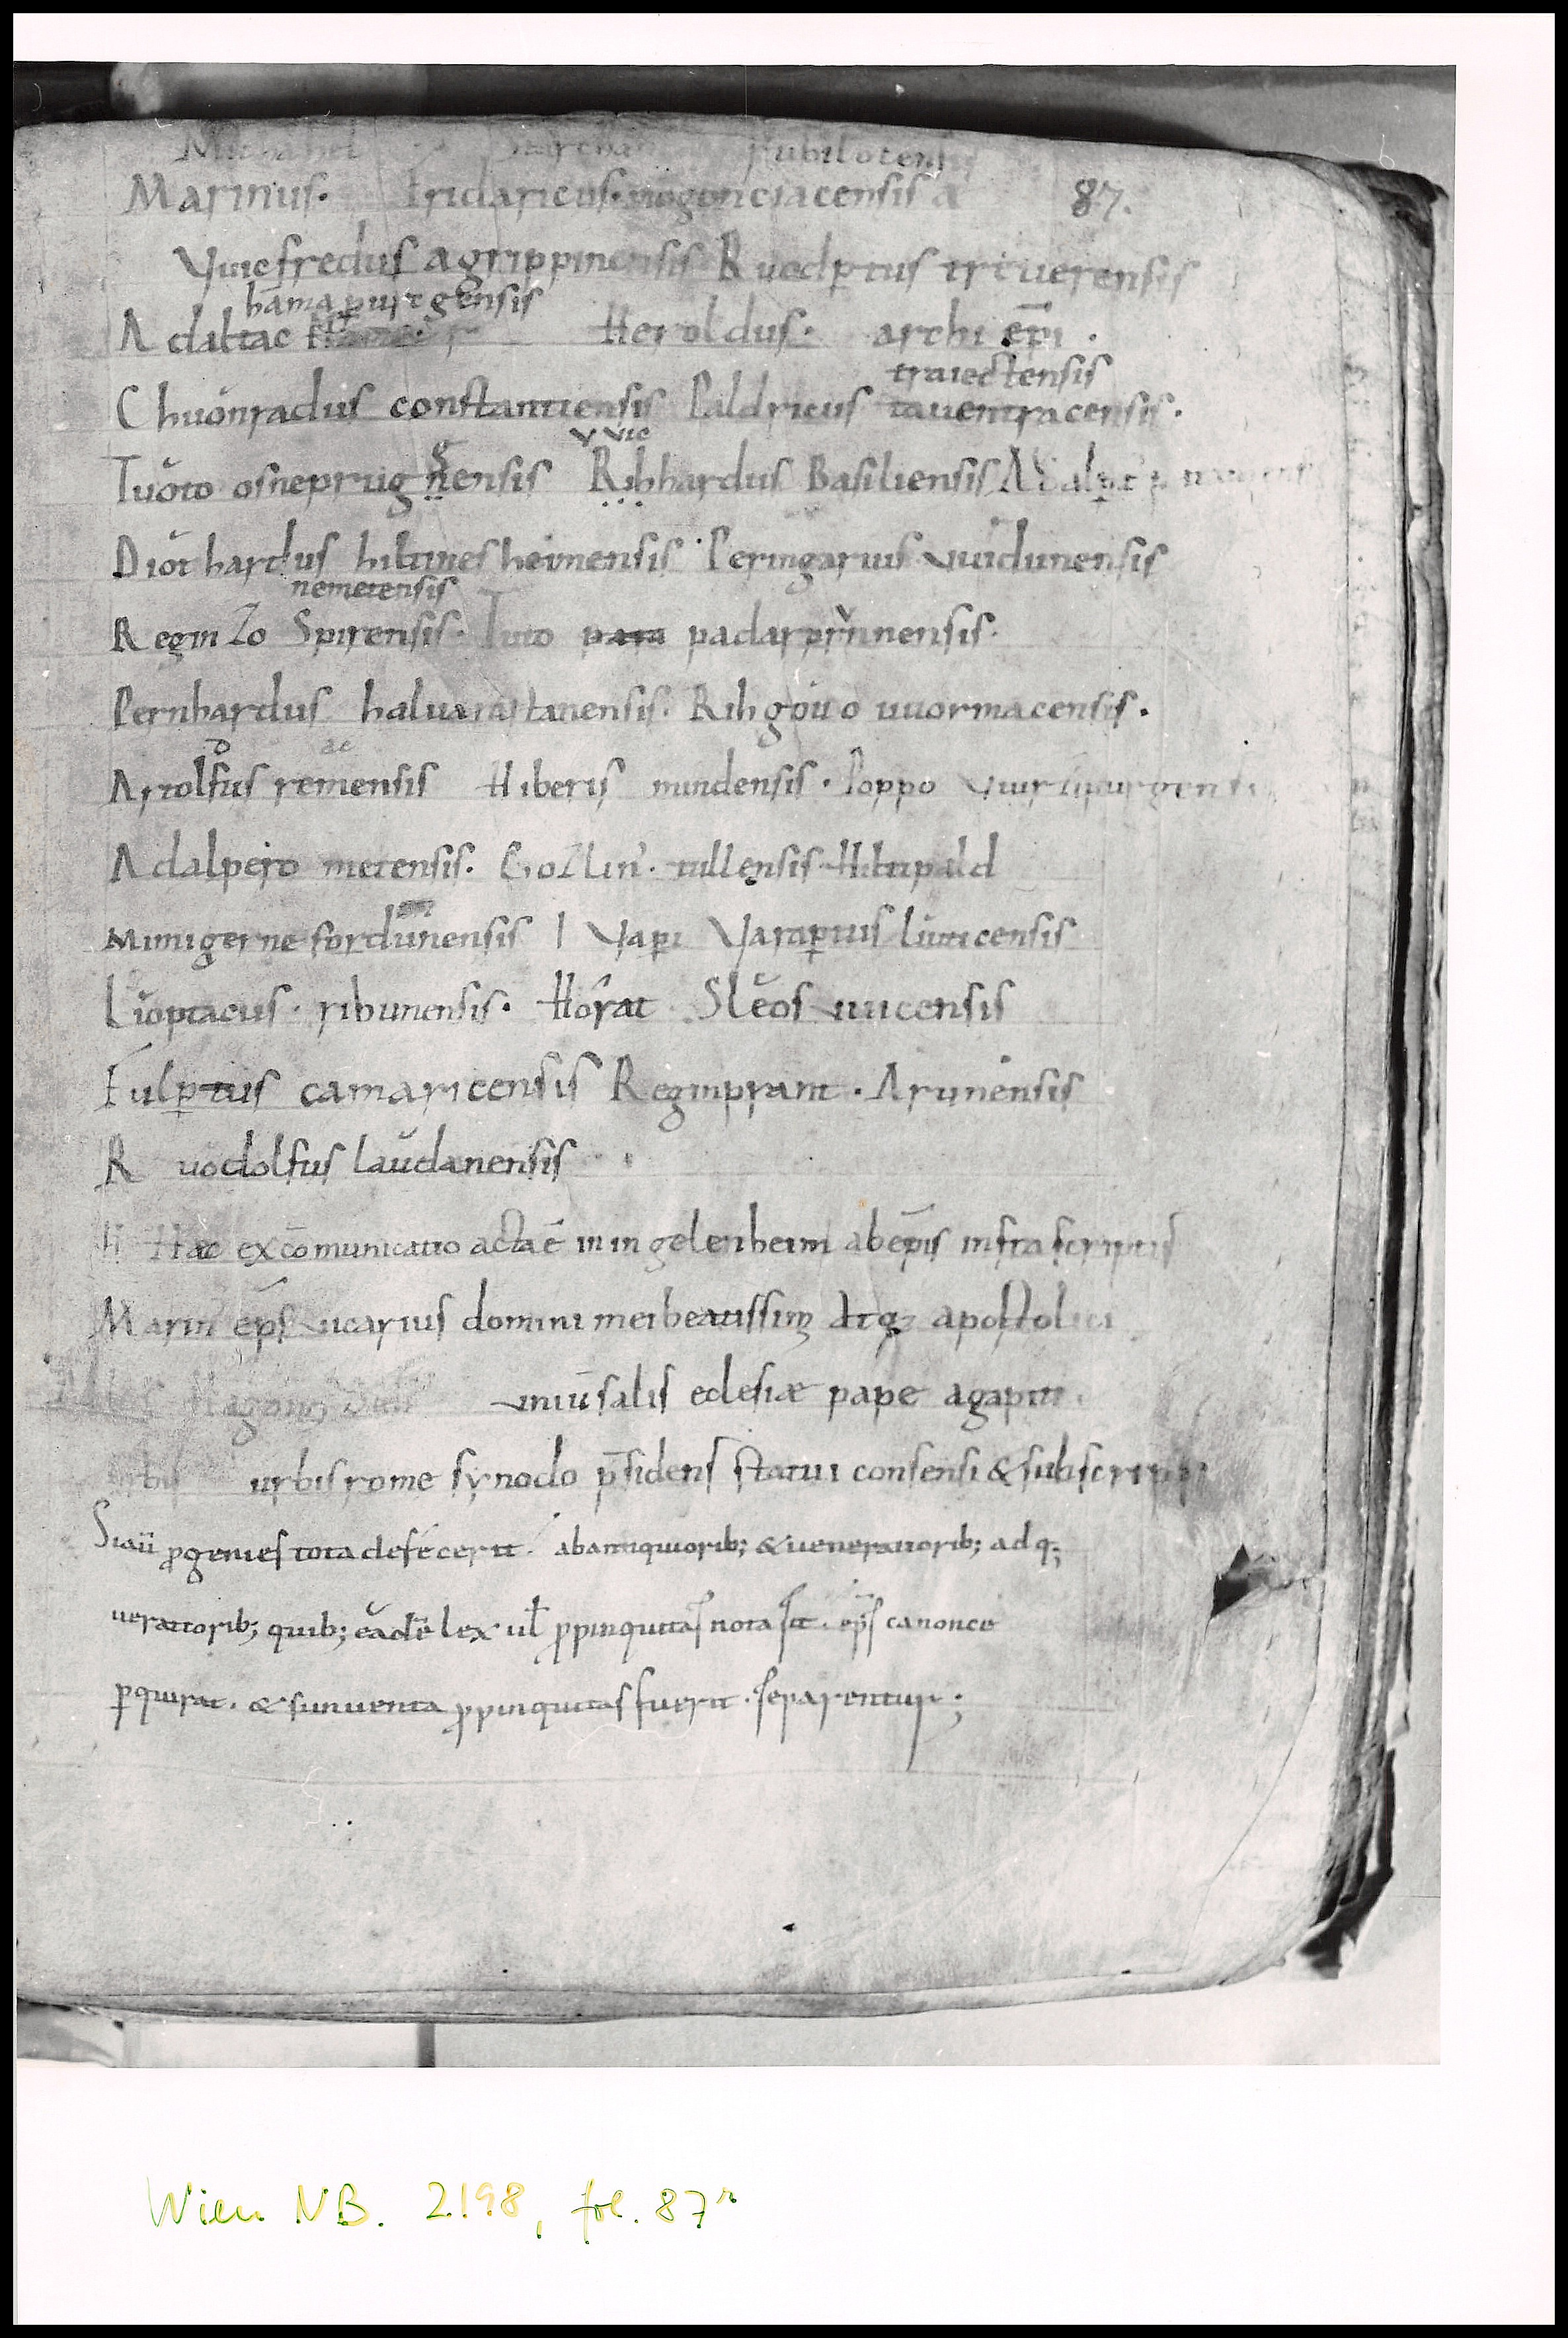 Michahel Starchan fubilotensis
Marinus. Fridaricus. mogonciacensis a 87.
Vuicfredus agrippinensis Ruodp̱tus triuerensis
hamap̱urgensis
Adaltac Heroldus. archi ep̄i.
traiectensis
Chuonradus constantiensis Paldricus tauentracensis.
g vvic
Tuoto osneprugnensis Rihhardus Basiliensis Adalp̱t
Diothardus hiltinesheimensis Peringarius uuidunensis
nemetensis
ReginZo Spirensis. Tuto para padarprinnensis.
Pernhardus haluarastanensis. Rihgouuo uuormacensis.
o ae
Artolfus remensis Hiberis mindensis. Poppo Vuirtzipurgensi
Adalpero metensis. Gozlin. tullensis Hiltipald
Mimigernefordunensis | Vap̱i Varap̱tus Liuticensis
Lioptacus. ribunensis. Horat Sleosuuicensis
Fulp̱tus camaricensis Reginprant. Arunensis
Ruodolfus laudanensis
H Haec excōmunicatio acta ē in ingelenheim ab ep̄is infra scriptis
Marin ep̄s uicarius domini mei beatissimi atq; apostolici
uniūsalis eclesiae pape agapiti.
urbis urbis rome synodo p̄sidens statui consensi & subscripsi
Siaū ꝓgenies tota defecerit. ab antiquiorib; & ueneratiorib; adq;
ueratiorib; quib; eadē lex ul̄ ꝓpinquitas nota sit. ep̄s canonce
p̱quirat. & si inuenta ꝓpinquitas fuerit. separentur;
Wien NB. 2198, fol. 87r